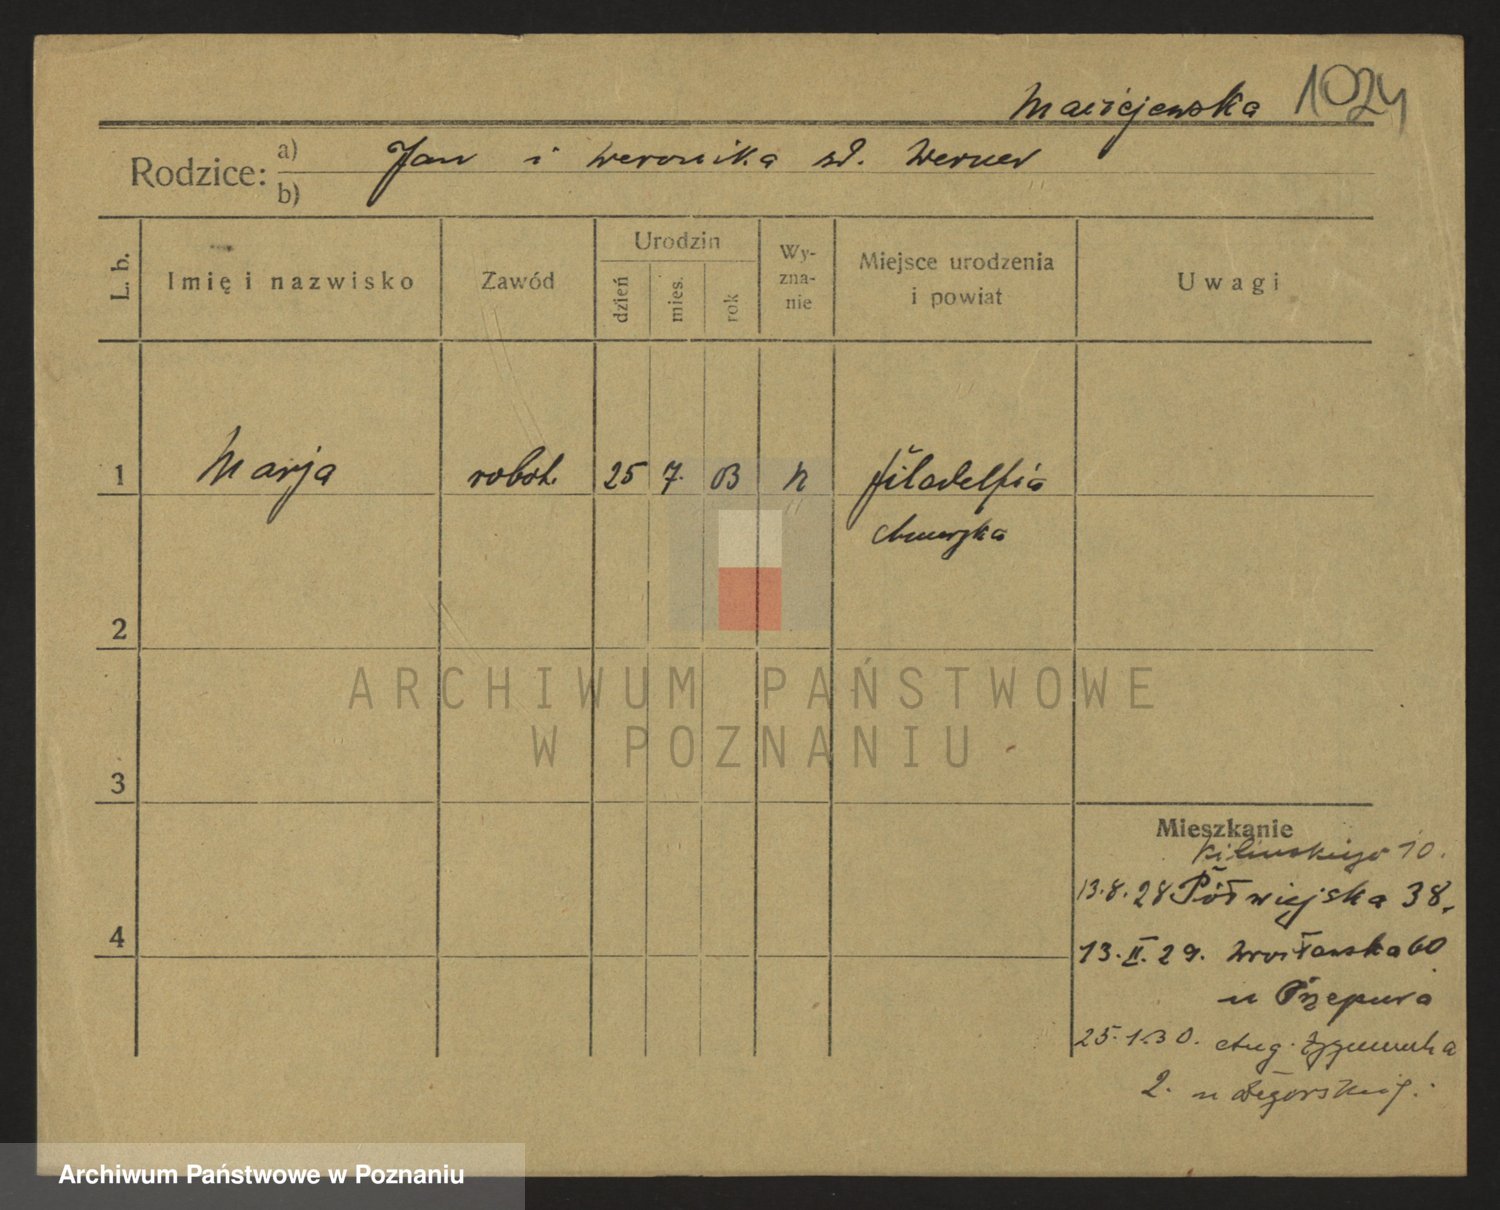 Maciejewska 1024
Rodzice: a) Jan i Weronika
b)
L. b.
Imię i nazwisko
Zawód
Urodzin
dzień
mies.
rok
Wy-
zna-
nie
Miejsce urodzenia
i powiat
Uwagi
1 Marja robot. 25 7. 03 Filadelfia
Ameryka
2
ARCHIWUM PAŃSTWOWE
W POZNANIU
3
Mieszkanie
Kilińskiego 10.
13.8.28 Półwiejska 38,
4
13.II.29. Wrocławska 60
u
25.1.30. Zygmunta
2. u
Archiwum Państwowe w Poznaniu